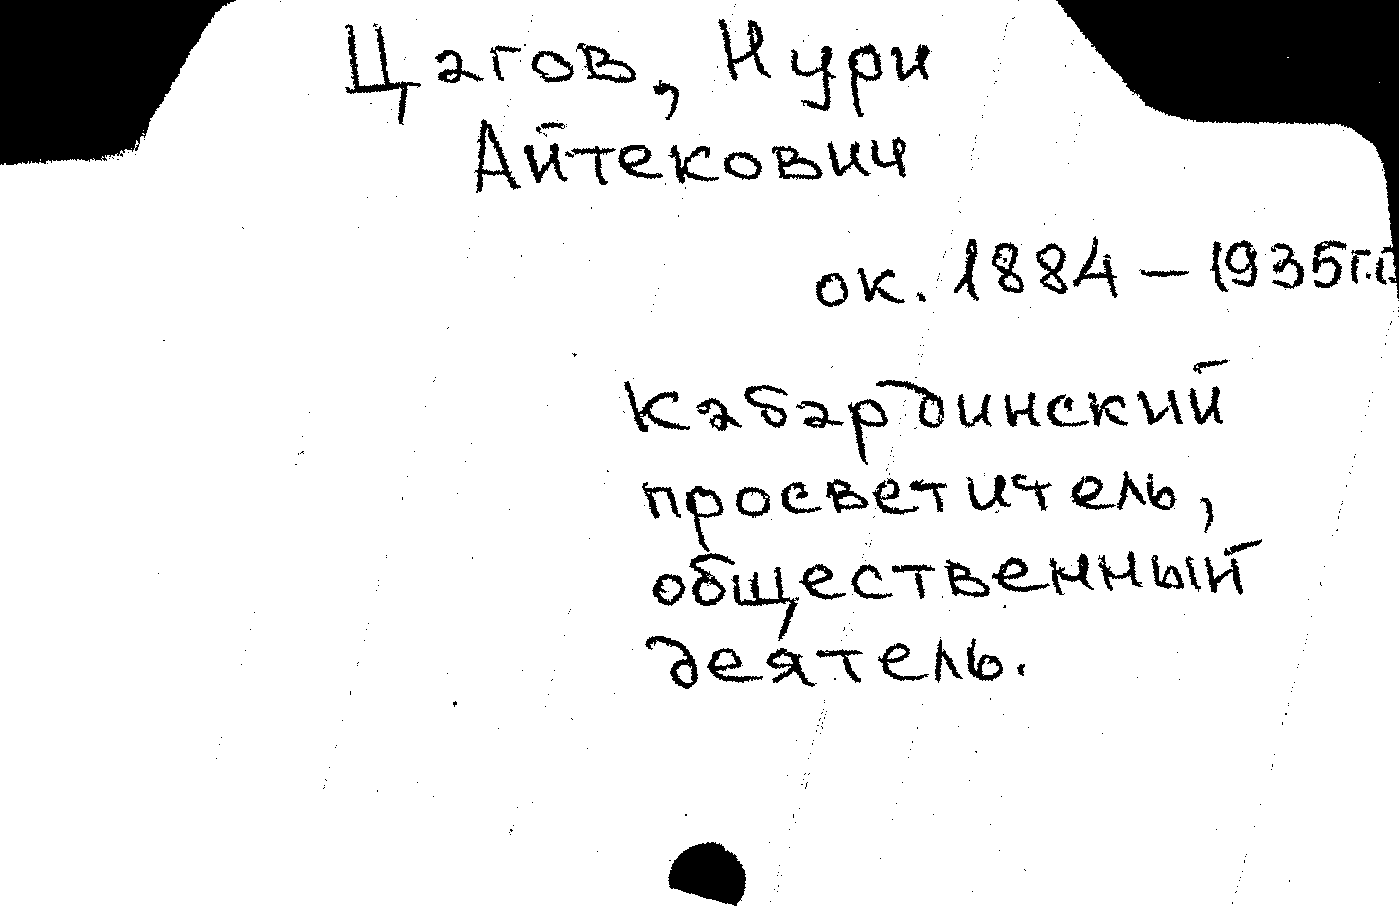 Цагов, Нури
Айтекович
ок. 1884 – 1935 г.г.
Кабардинский
просветитель,
общественный
деятель.